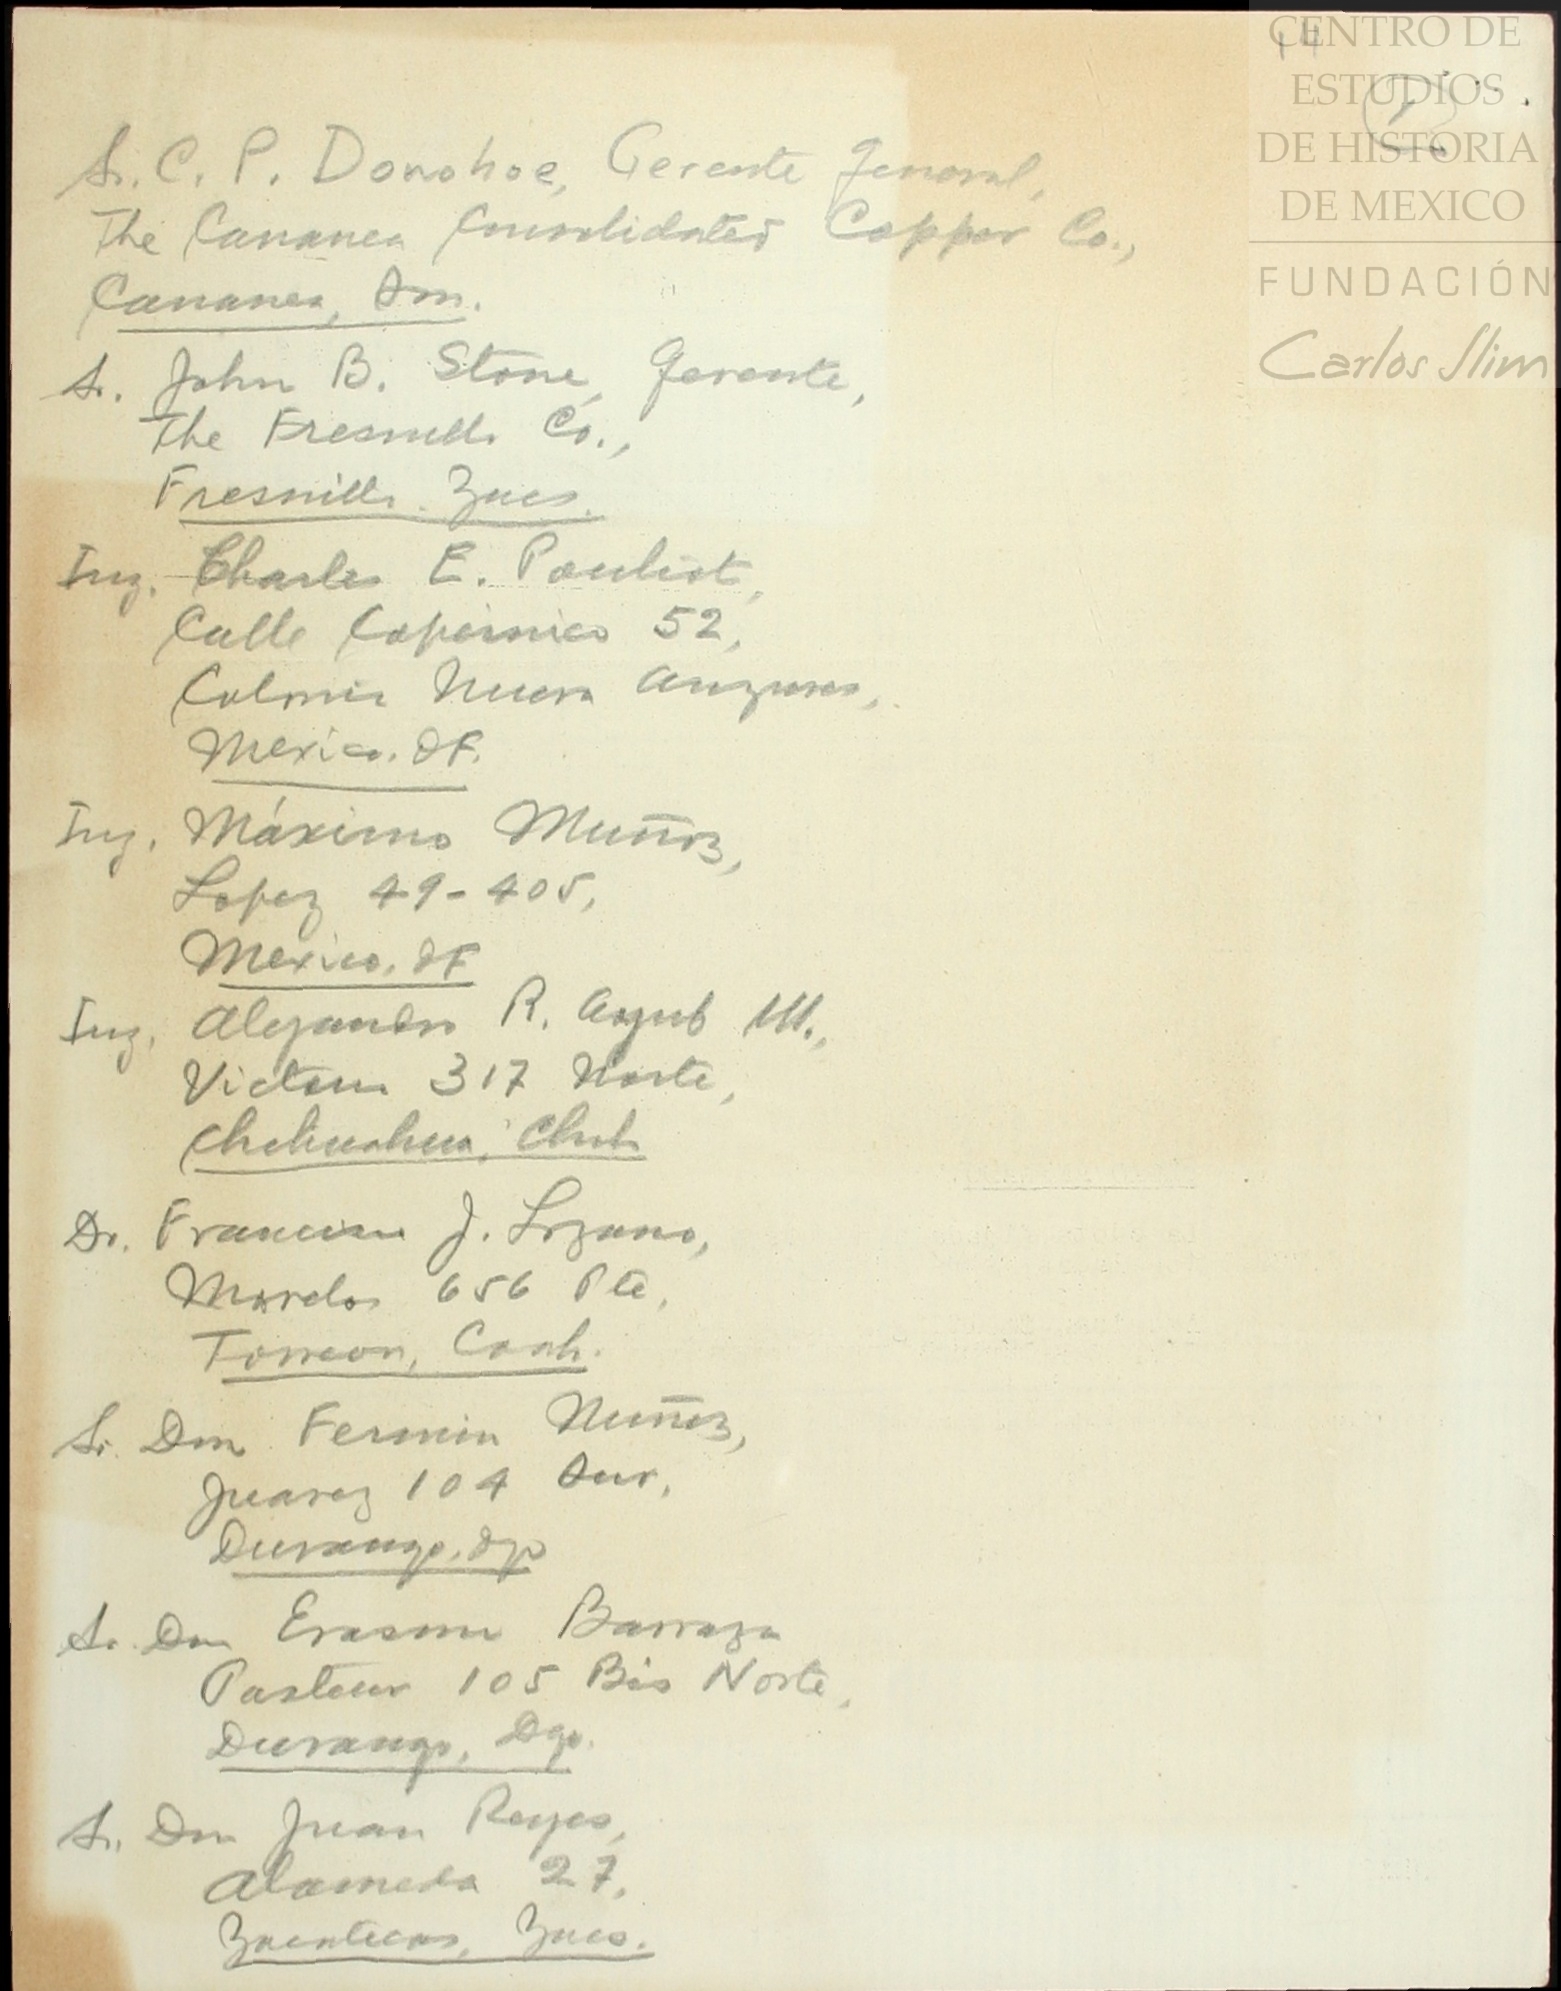 CENTRO DE
ESTUDIOS
DE HISTORIA
DE MEXICO
FUNDACIÓN
Carlos Slim
14
Sr. C. P. Donohoe, Gerente General,
The Cananea Consolidated Copper Co.,
Cananea, Son.
Sr. John B. Stone, Gerente,
The Fresnillo Co.,
Fresnillo. Zacs.
Ing. Charles E. Pouliot,
Calle Copérnico 52,
Colonia Nueva Anzures,
Mexico. DF.
Ing. Máximo Muñoz,
Lopez 49-405,
Mexico. DF
Ing. Alejandro R. Aryub M.,
Victoria 317 Norte,
Chihuahua, Chih.
Dr. Francisco J. Lozano,
Morelos 656 Pte,
Torreon, Coah.
Sr. Don Fermin Nuñez,
Juarez 104 Sur,
Durango. Dgo
Sr. Don Erasmo Barraza
Pasteur 105 Bis Norte,
Durango, Dgo.
Sr. Don Juan Reyes,
Alameda 27,
Zacatecas, Zacs.